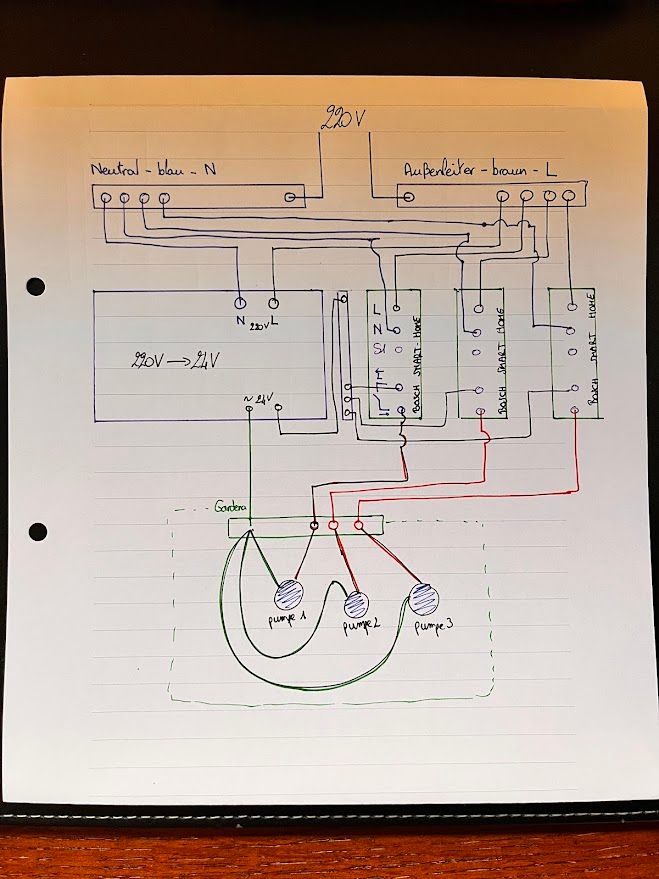 220V
Neutral - blau - N
Außenleiter - braun - L
N 220V L
220V → 24V
~ 24V
L
N
S1
I
BOSCH SMART-HOME
BOSCH SMART HOME
BOSCH SMART HOME
Gardena
pumpe 1
pumpe 2
pumpe 3